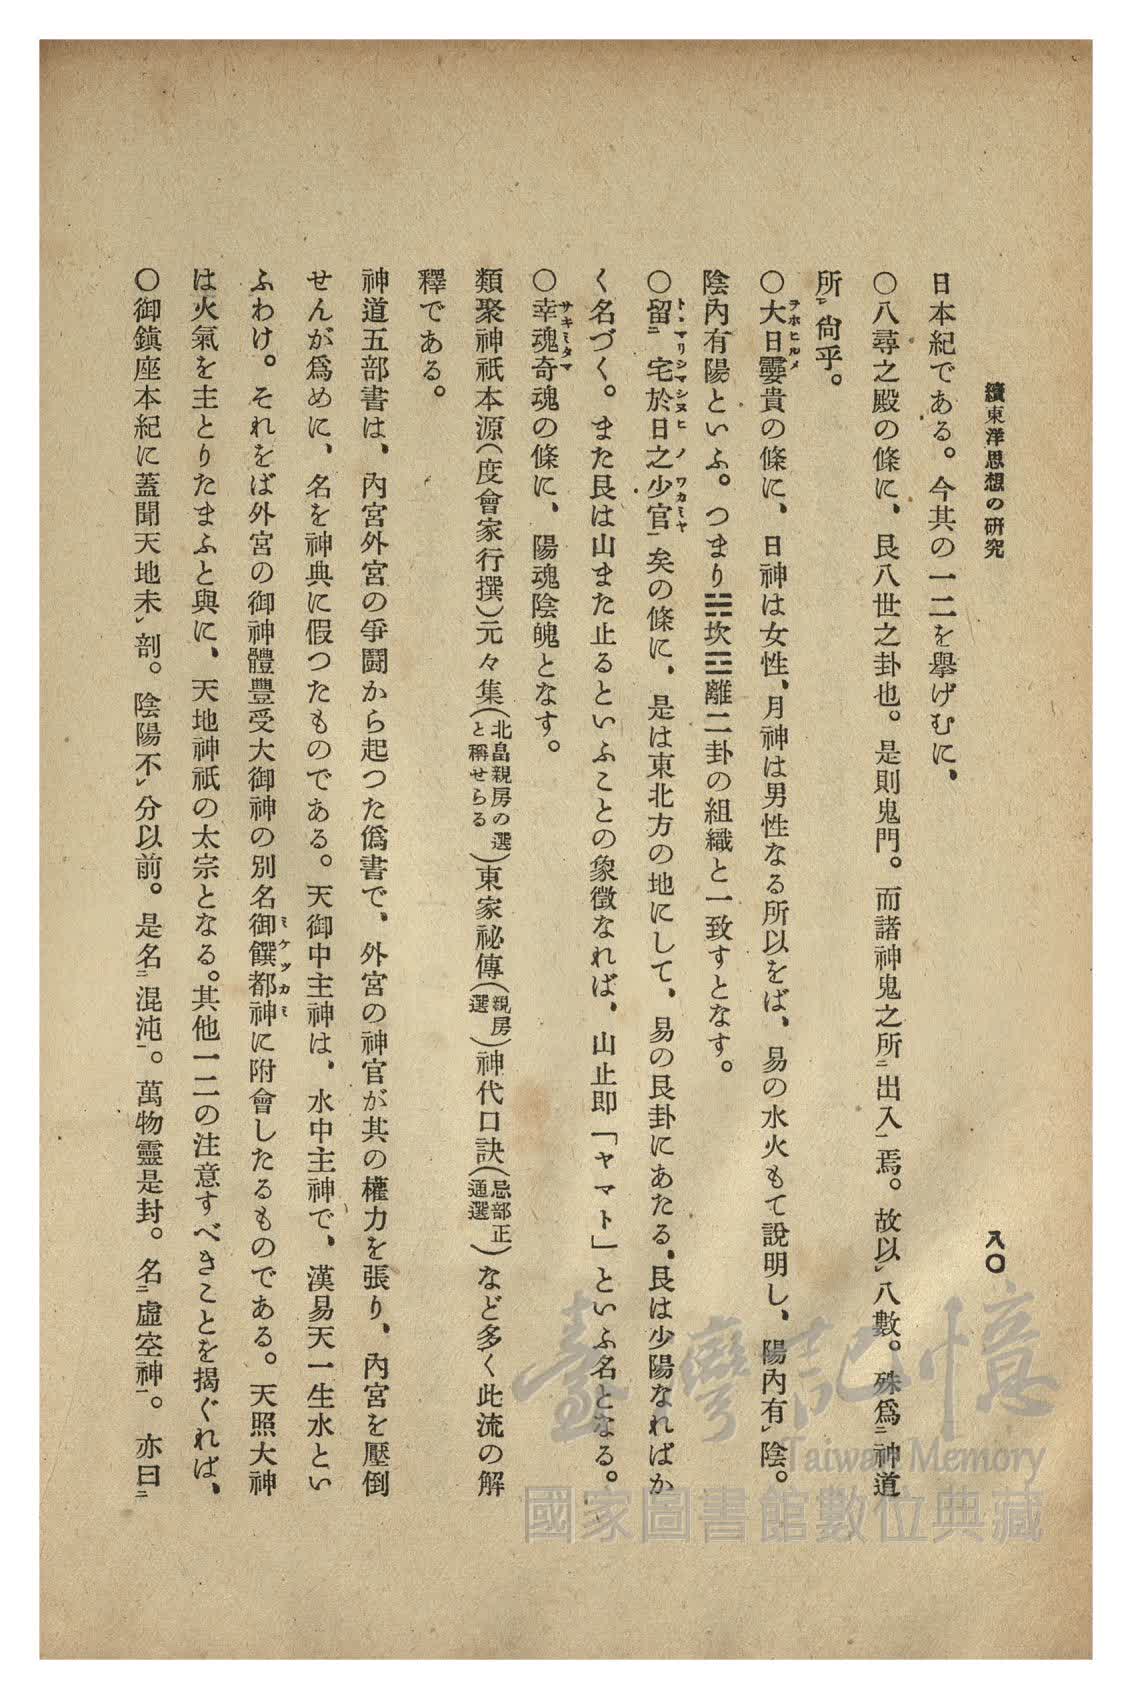 續東洋思想の研究
八〇
日本紀である。今其の一二を擧げむに、
〇八尋之殿の條に、艮八世之卦也。是則鬼門。而諸神鬼之所㆓出入㆒焉。故以㆑八數。殊爲㆓神道
所㆑尙乎。
〇大日孁貴の條に、日神は女性、月神は男性なる所以をば、易の水火もて說明し、陽內有㆑陰。
ヲホヒルメ
陰內有陽といふ。つまり☵坎☲離二卦の組織と一致すとなす。
〇留㆓宅於日之少宮㆒矣の條に、是は東北方の地にして、易の艮卦にあたる、艮は少陽なればか
トヽマリシマシヌヒノワカミヤ
く名づく。また艮は山また止るといふことの象徵なれば、山止即「ヤマト」といふ名となる。
〇幸魂奇魂の條に、陽魂陰魄となす。
サキミタマ
類聚神祇本源(度會家行撰)元々集(北畠親房の選と稱せらる)東家祕傳(親房選)神代口訣(忌部正通選)など多く此流の解
釋である。
神道五部書は、內宮外宮の爭鬪から起つた僞書で、外宮の神官が其の權力を張り、內宮を壓倒
せんが爲めに、名を神典に假つたものである。天御中主神は、水中主神で、漢易天一生水とい
ふわけ。それをば外宮の御神體豐受大御神の別名御饌都神に附會したるものである。天照大神
ミケツカミ
は火氣を主とりたまふと與に、天地神祇の太宗となる。其他一二の注意すべきことを揭ぐれば、
〇御鎭座本紀に蓋聞天地未㆑剖。陰陽不㆑分以前。是名㆓混沌㆒。萬物靈是封。名㆓虛空神㆒。亦曰㆓
臺灣記憶
Taiwan Memory
國家圖書館數位典藏